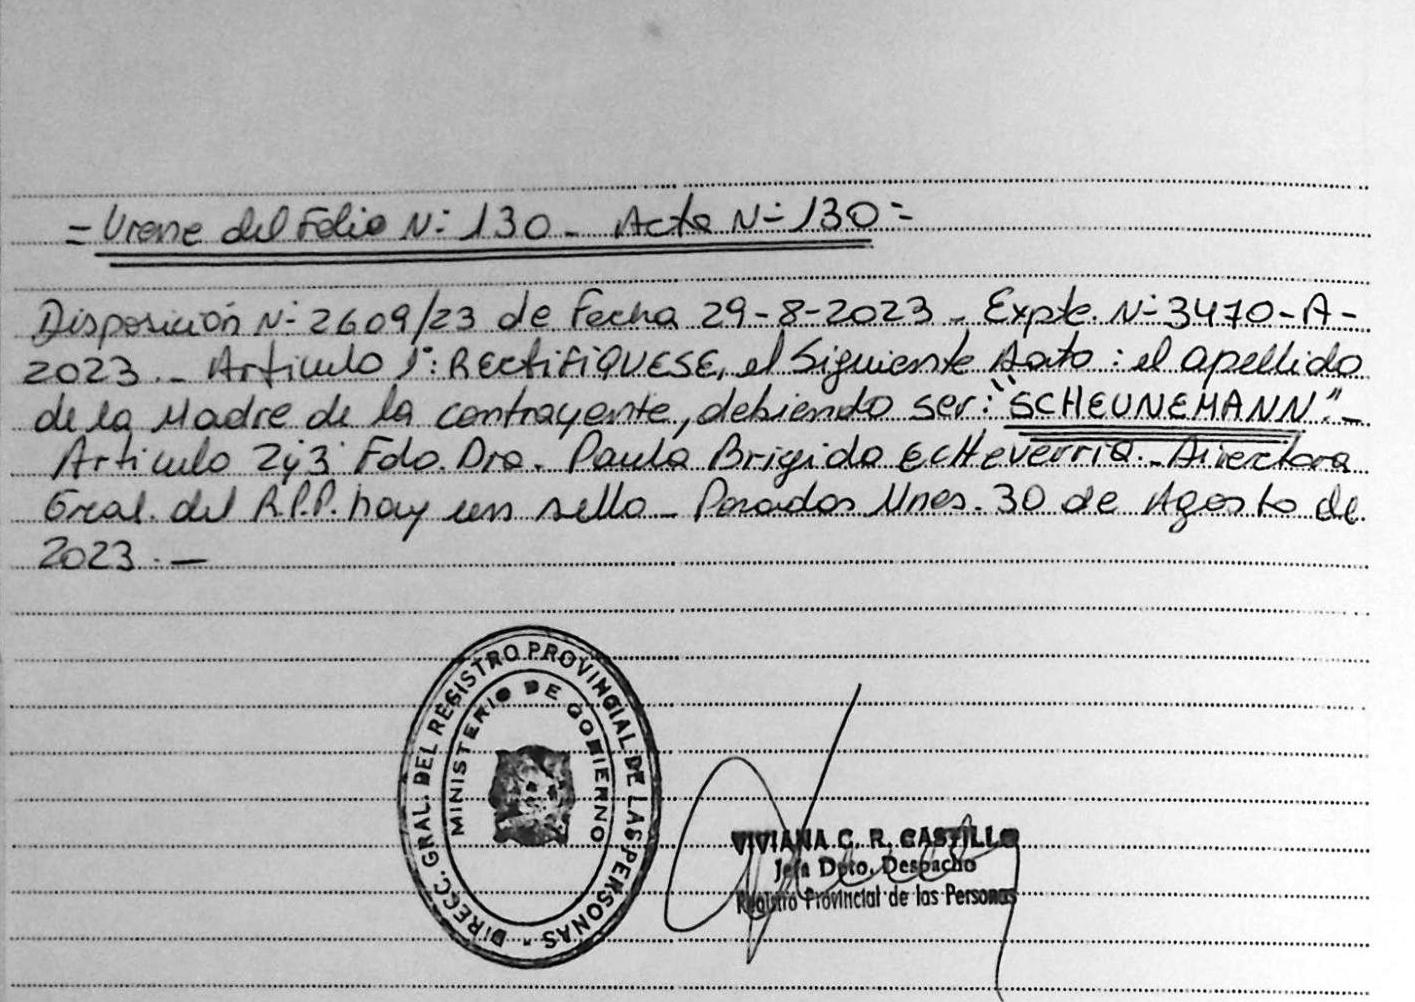 = Viene del Folio N- 130 - Acta N- 130 =
Disposición N- 2609/23 de Fecha 29-8-2023 - Expte. N- 3470-A-
2023 .- Artículo 1°: RECTIFIQUESE, el Siguiente Dato : el apellido
de la Madre de la contrayente, debiendo ser: "SCHEUNEMANN".-
Articulo 2y3 Fdo. Dra. Paula Brigida Echeverria.- Directora
Gral. del R.P.P. hay un sello - Posadas Mnes. 30 de Agosto de
2023 .-
DIRECC. GRAL. DEL REGISTRO PROVINCIAL DE LAS PERSONAS -
MINISTERIO DE GOBIERNO
VIVIANA C. R. CASTILLO
Jefa Dpto. Despacho
Registro Provincial de las Personas